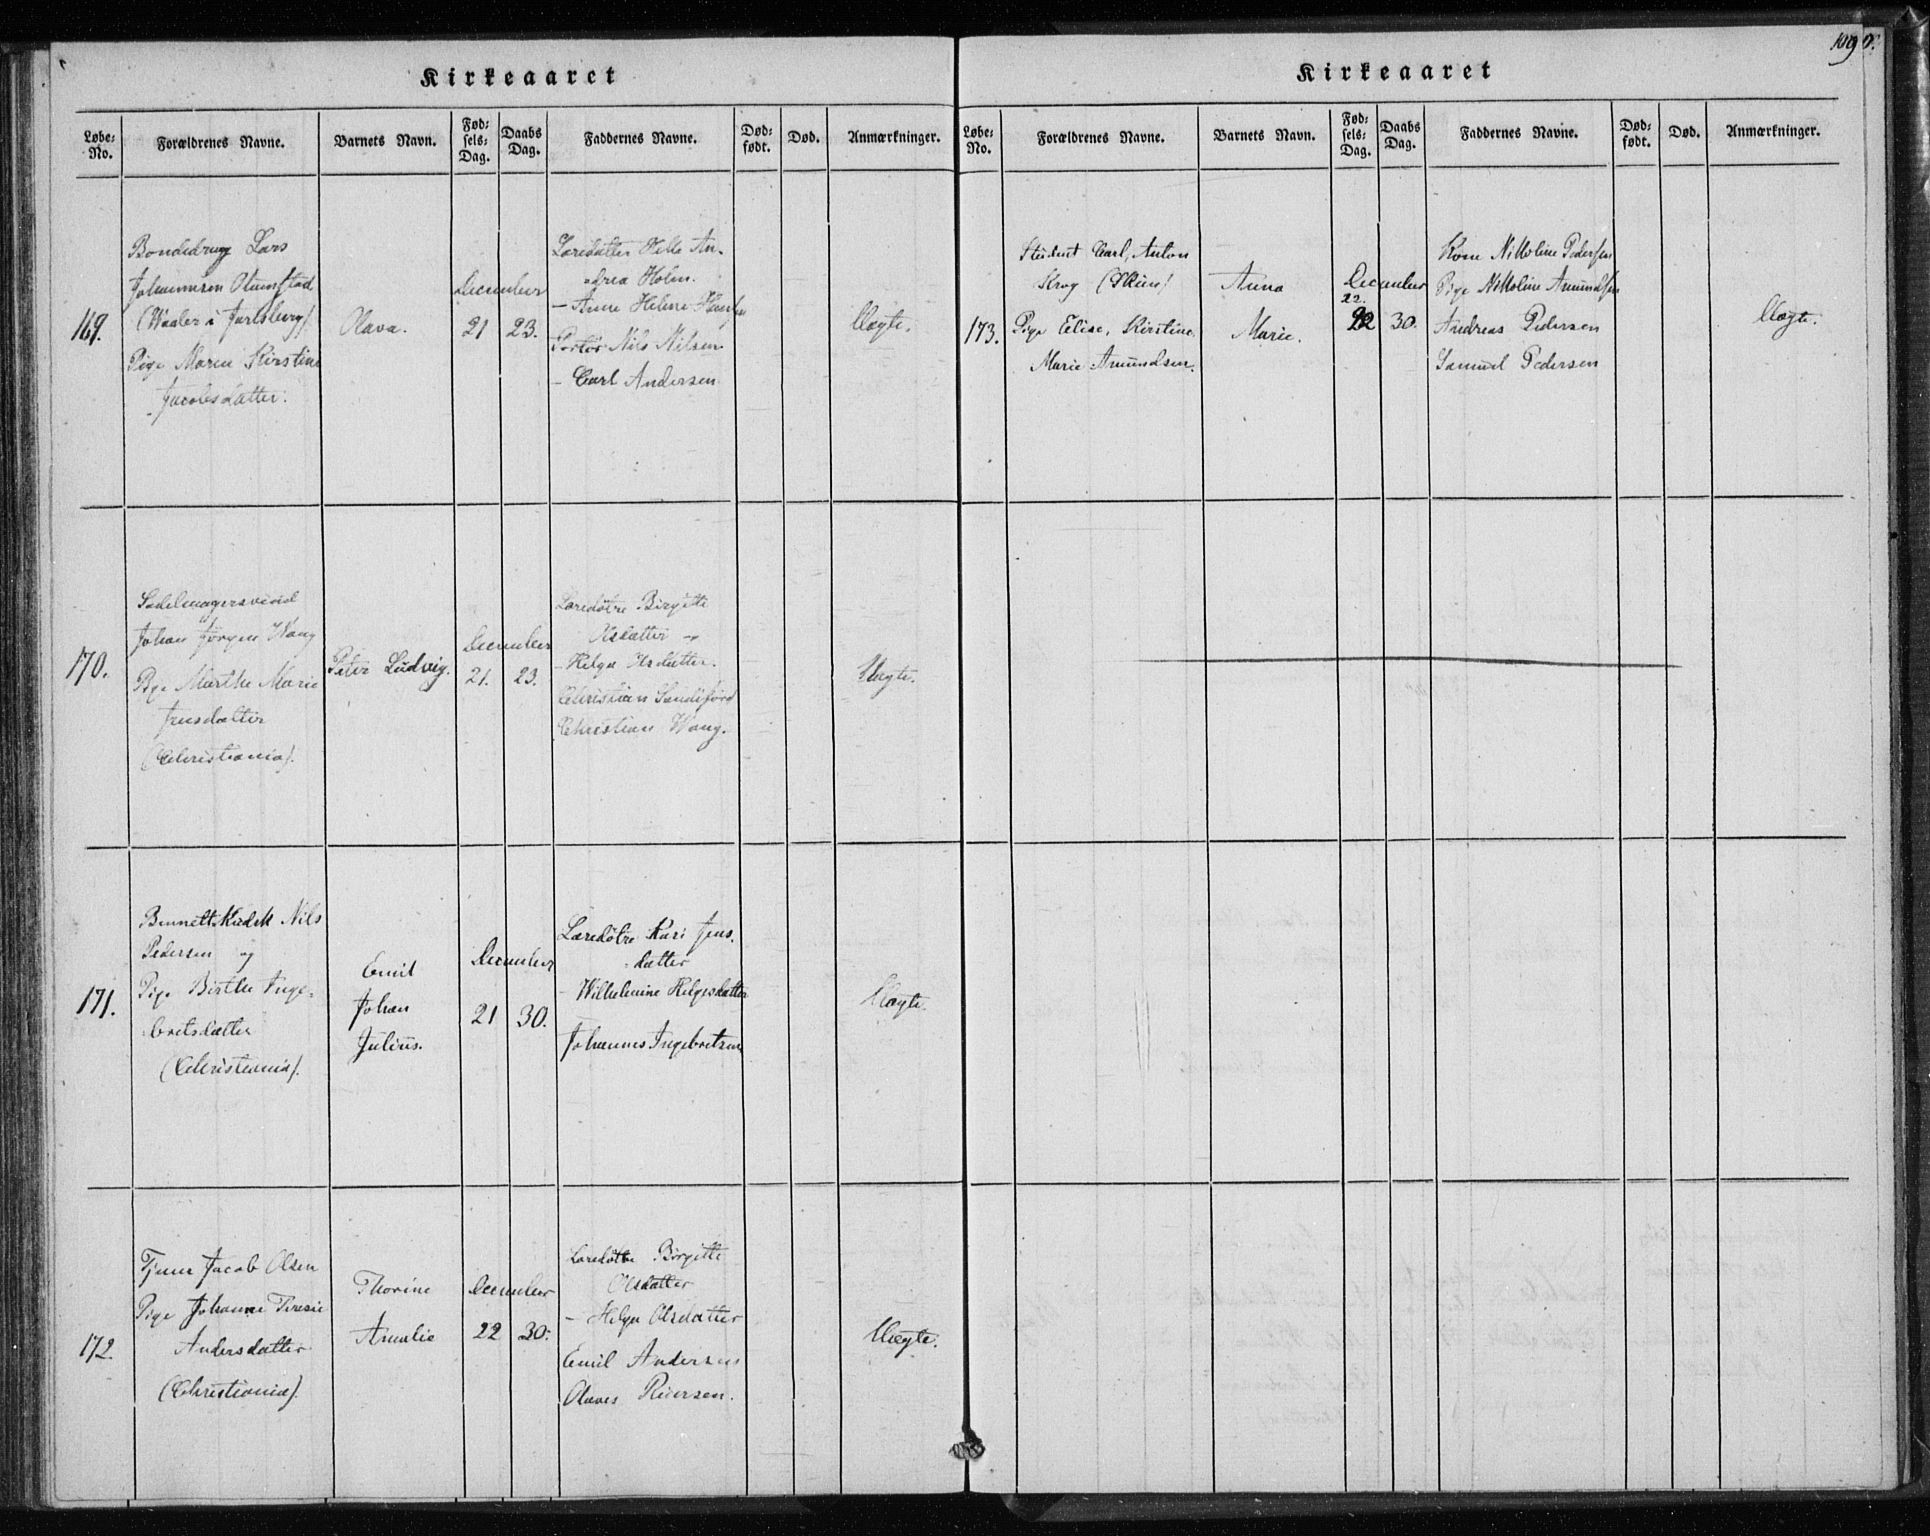 1090.
Kirkeaaret
Løbe-No. Forældrenes Navne. Barnets Navn. Fød-sels-Dag. Daabs Dag. Faddernes Navne. Død-født. Død. Anmærkninger.
169.
Bondedreng Lars
Johannesen
(Waaler i Jarlsberg)
Pige Maren Kirstine
Jacobsdatter.
Olava.
December
21 23.
Helle An-
drea Holm.
- Anne Helene
Portør Nils Nilsen
- Carl Andersen
Uægte.
170.
Sadelmagersvend
Johan Jørgen Wang
Pige Marthe Marie
Jensdatter
(Christiania).
Peter Ludvig.
December
21. 23.
Læredøtre Birgitte
Olsdatter
- Helga Olsdatter.
Christian
Christian Wang.
Uægte.
171.
Nils
Pedersen og
Pige Birthe Inge-
bretsdatter
(Christiania).
Emil
Johan
Julius.
December
21 30.
Læredøtre Kari Jens-
datter
- Wilhelmine Helgesdatter
Johannes Ingebretsen
Uægte.
172.
Jacob Olsen
Pige Johanne Teresie
Andersdatter
(Christiania).
Thorine
Amalie
December
22 30.
Læredøtre Birgitte
Olsdatter
- Helga Olsdatter
Emil Andersen
Olaves
Uægte.
Kirkeaaret
Løbe-No. Forældrenes Navne. Barnets Navn. Fød-sels-Dag. Daabs Dag. Faddernes Navne. Død-født. Død. Anmærkninger.
173.
Student Carl Anton
Krog (Skien)
Pige Elise Kirstine
Marie Amundsen.
Anna
Marie.
December
22.
22 30.
Kone Nikoline Pedersen
Pige Nikoline Amundsen
Andreas Pedersen
Samuel Pedersen
Uægte.